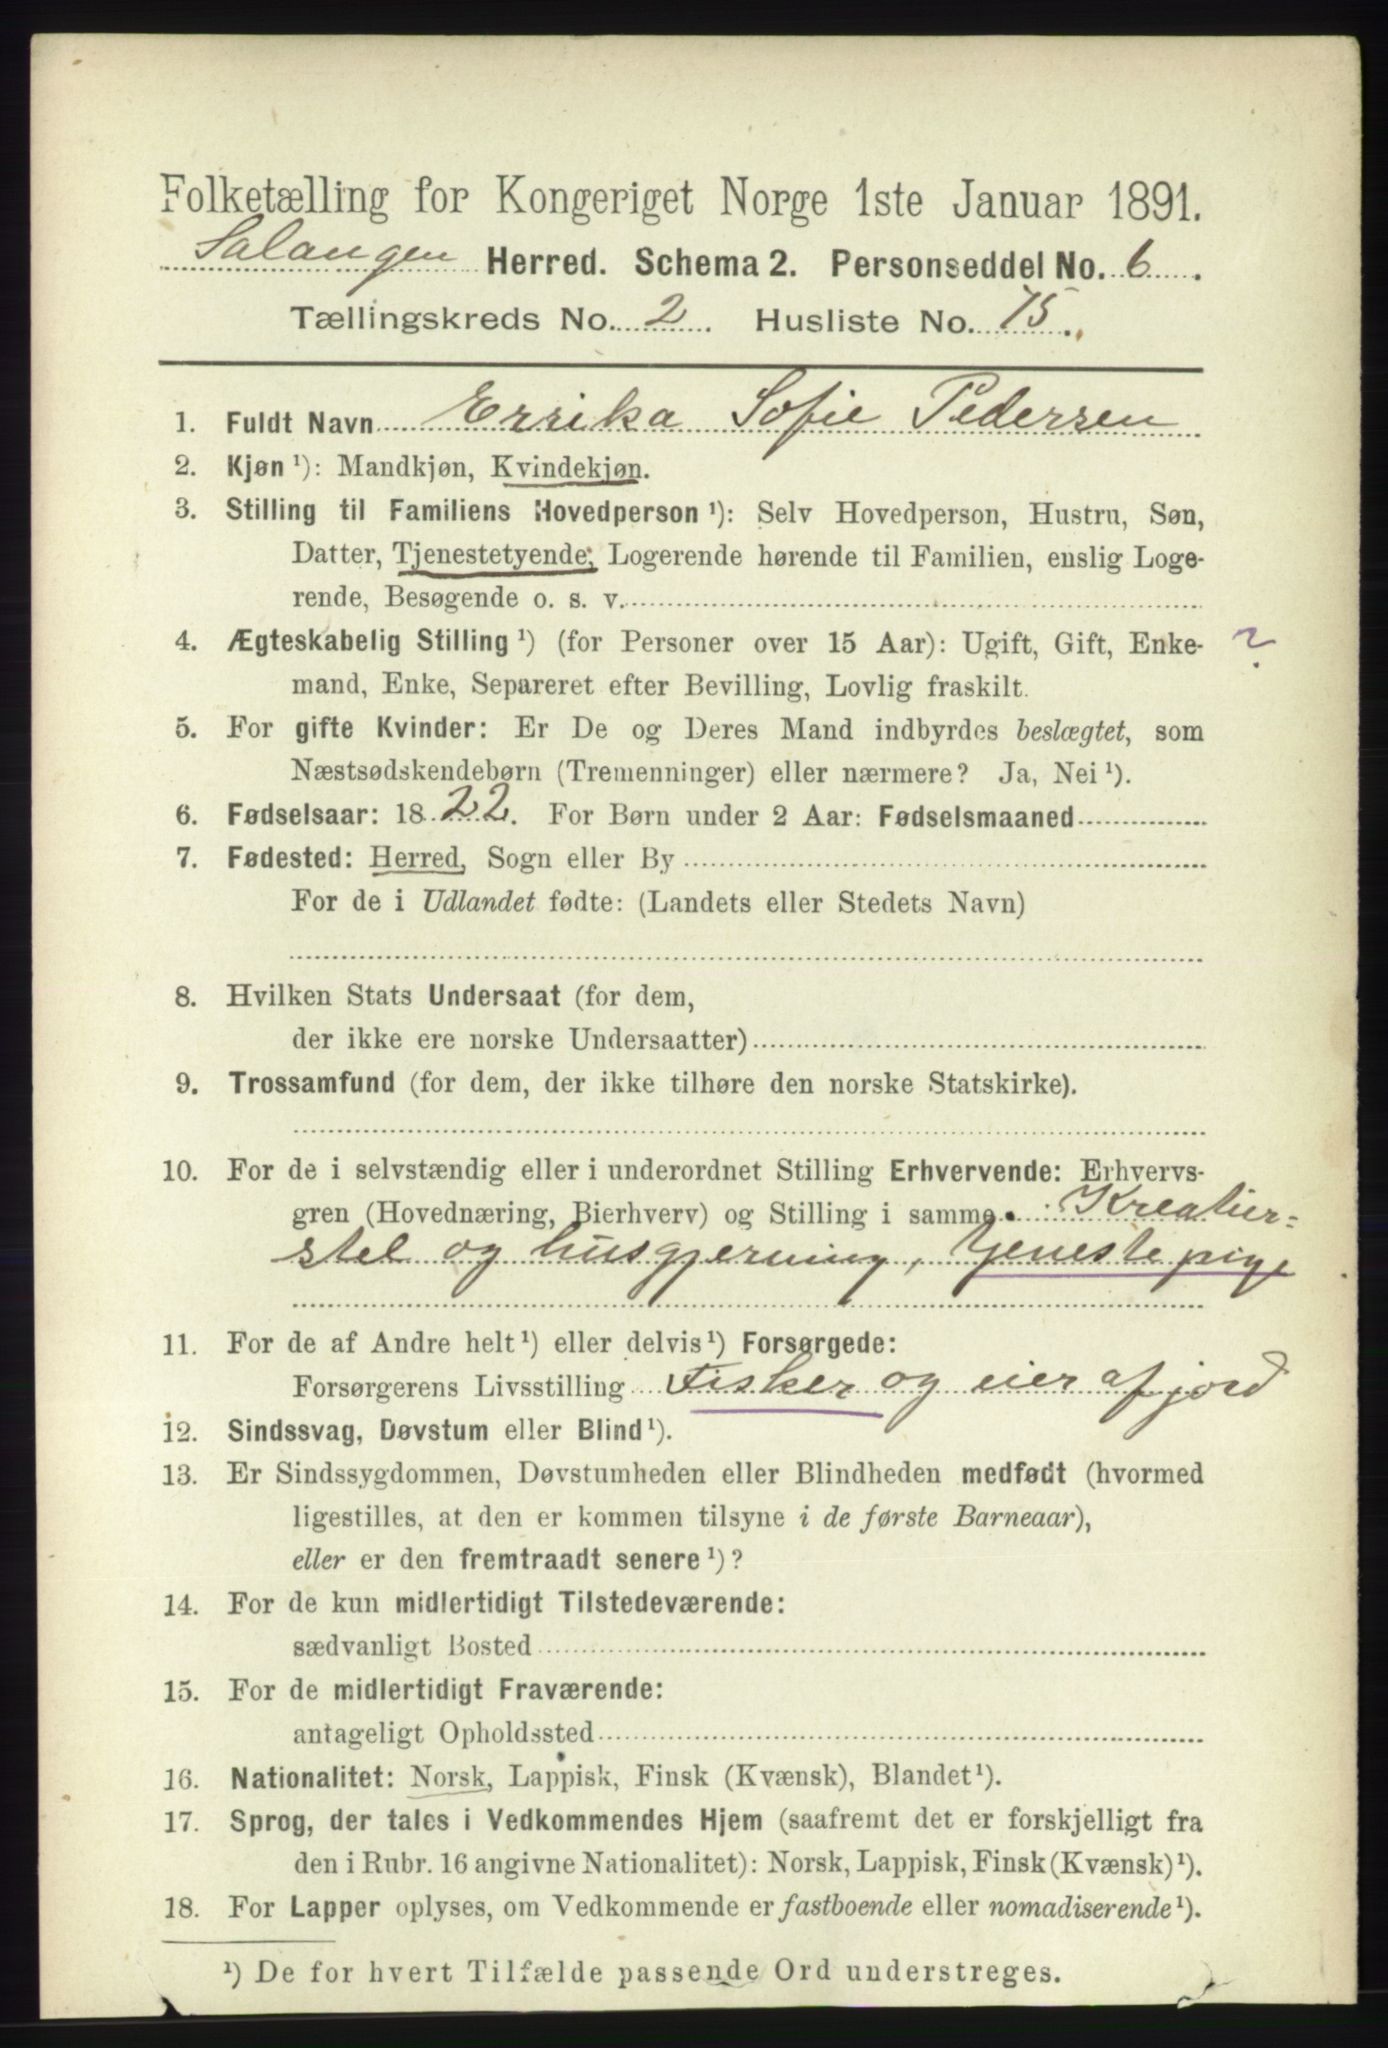 Folketælling for Kongeriget Norge 1ste Januar 1891.
Salangen Herred. Schema 2. Personseddel No. 6.
Tællingskreds No. 2. Husliste No. 15.
1. Fuldt Navn Errika Sofie Pedersen
2. Kjøn ¹): Mandkjøn, Kvindekjøn.
3. Stilling til Familiens Hovedperson ¹): Selv Hovedperson, Hustru, Søn,
Datter, Tjenestetyende, Logerende hørende til Familien, enslig Loge-
rende, Besøgende o. s. v.
4. Ægteskabelig Stilling ¹) (for Personer over 15 Aar): Ugift, Gift, Enke- ?
mand, Enke, Separeret efter Bevilling, Lovlig fraskilt.
5. For gifte Kvinder: Er De og Deres Mand indbyrdes beslægtet, som
Næstsødskendebørn (Tremenninger) eller nærmere? Ja, Nei ¹).
6. Fødselsaar: 1822. For Børn under 2 Aar: Fødselsmaaned
7. Fødested: Herred, Sogn eller By
For de i Udlandet fødte: (Landets eller Stedets Navn)
8. Hvilken Stats Undersaat (for dem,
der ikke ere norske Undersaatter)
9. Trossamfund (for dem, der ikke tilhøre den norske Statskirke).
10. For de i selvstændig eller i underordnet Stilling Erhvervende: Erhvervs-
gren (Hovednæring, Bierhverv) og Stilling i samme. Kreatur=
stel og husgjerning, tjenestepige
11. For de af Andre helt ¹) eller delvis ¹) Forsørgede:
Forsørgerens Livsstilling Fisker og eier af jord
12. Sindssvag, Døvstum eller Blind ¹).
13. Er Sindssygdommen, Døvstumheden eller Blindheden medfødt (hvormed
ligestilles, at den er kommen tilsyne i de første Barneaar),
eller er den fremtraadt senere ¹)?
14. For de kun midlertidigt Tilstedeværende:
sædvanligt Bosted
15. For de midlertidigt Fraværende:
antageligt Opholdssted
16. Nationalitet: Norsk, Lappisk, Finsk (Kvænsk), Blandet ¹).
17. Sprog, der tales i Vedkommendes Hjem (saafremt det er forskjelligt fra
den i Rubr. 16 angivne Nationalitet): Norsk, Lappisk, Finsk (Kvænsk) ¹).
18. For Lapper oplyses, om Vedkommende er fastboende eller nomadiserende ¹).
¹) De for hvert Tilfælde passende Ord understreges.